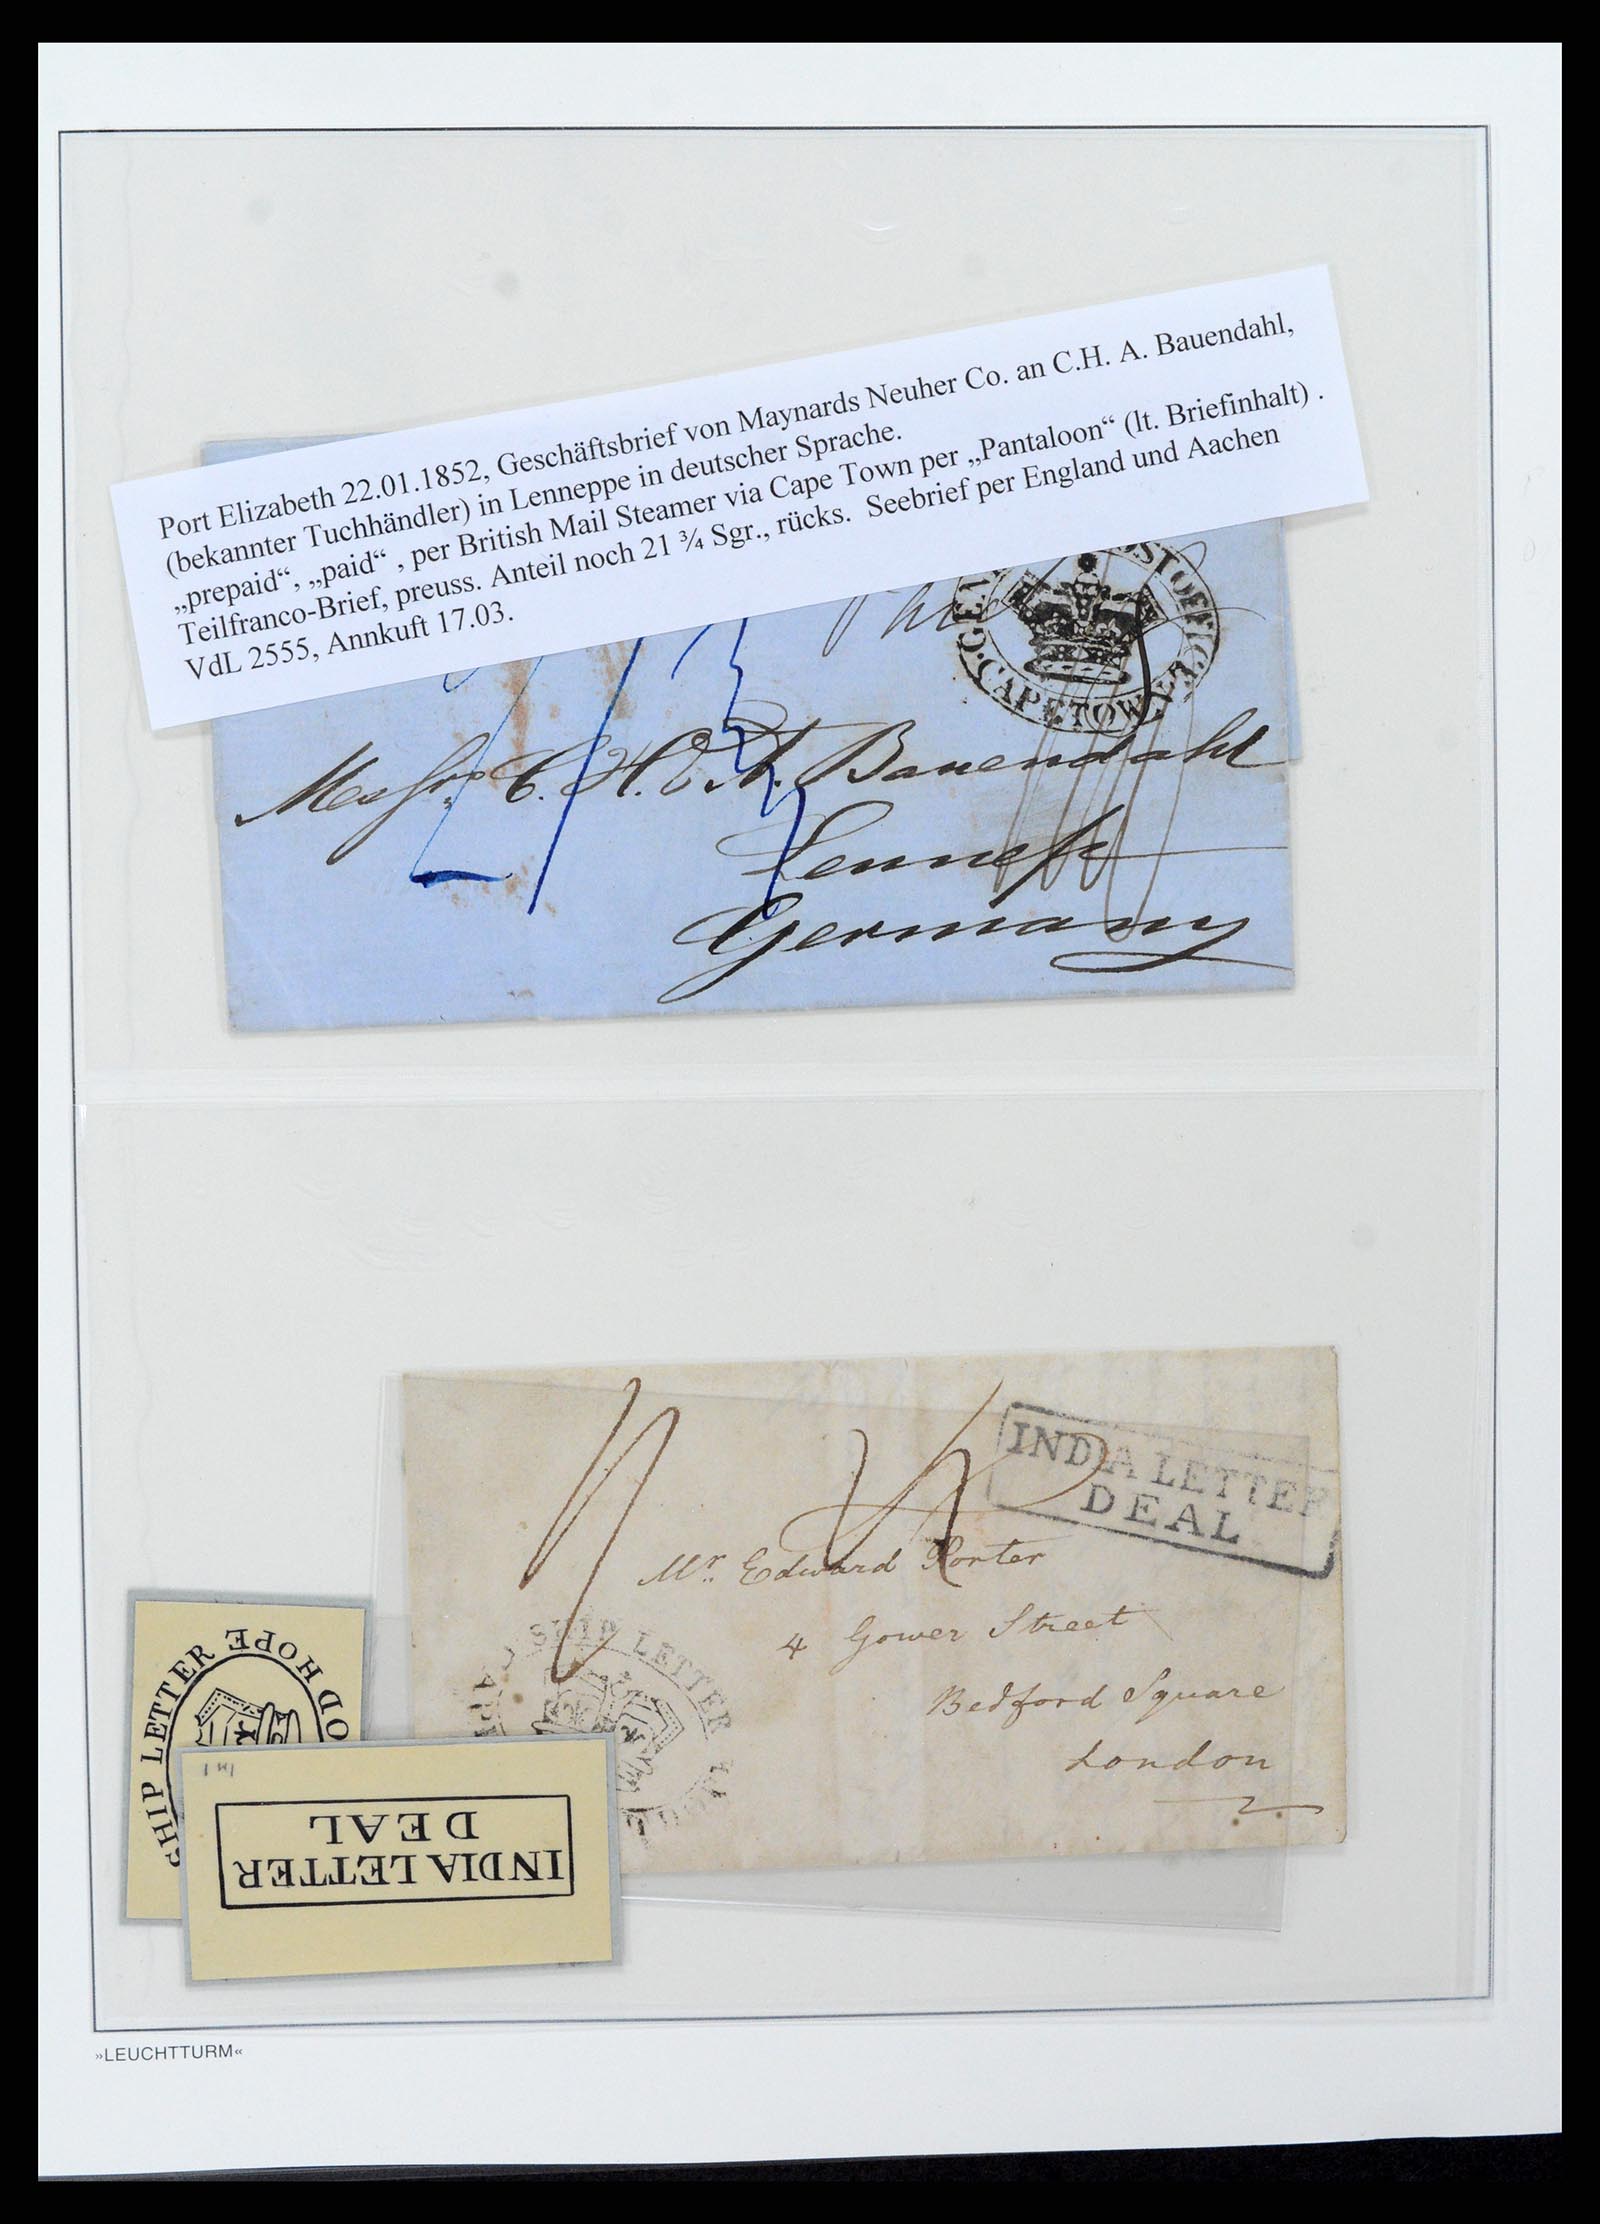 Port Elizabeth 22.01.1852, Geschäftsbrief von Maynards Neuher Co. an C.H. A. Bauendahl,
(bekannter Tuchhändler) in Lenneppe in deutscher Sprache.
„prepaid“, „paid“ , per British Mail Steamer via Cape Town per „Pantaloon“ (lt. Briefinhalt) .
Teilfranco-Brief, preuss. Anteil noch 21 ¾ Sgr., rücks. Seebrief per England und Aachen
VdL 2555, Annkuft 17.03.
CAPE TOWN
Messrs C. H. & A. Bauendahl
Lennep
Germany
INDIA LETTER
DEAL
Mr. Edward Porter
4 Gower Street
Bedford Square
London
SHIP LETTER
SHIP LETTER
OD HOPE
INDIA LETTER
DEAL
»LEUCHTTURM«